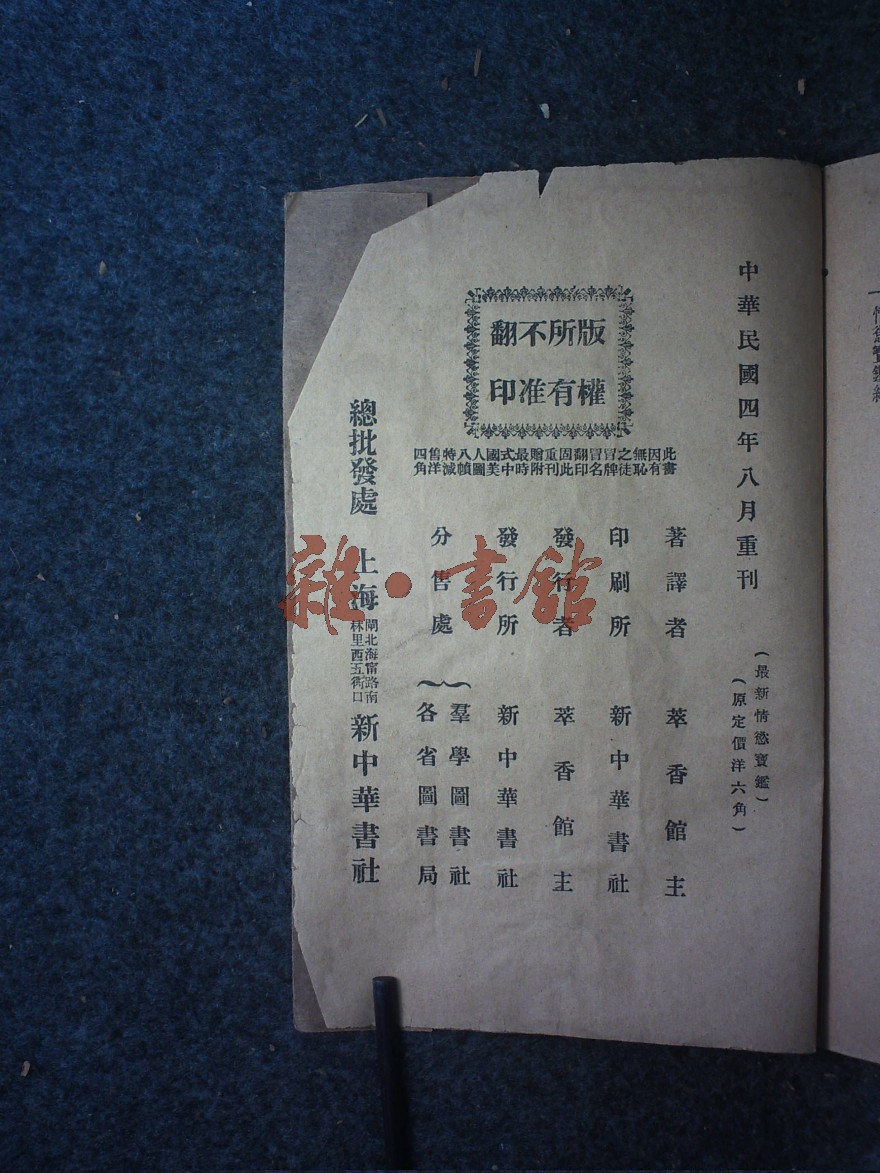 中華民國四年八月重刊
(最新情慾寶鑑)
(原定價洋六角)
版權
所有
不准
翻印
此書因有無恥之徒冒牌冒名翻印固此重刊贈附最時式中國美人圖八幀特減售洋四角
著譯者 萃香館主
印刷所 新中華書社
發行者 萃香館主
發行所 新中華書社
分售處
羣學圖書社
各省圖書局
總批發處 上海
閘北海甯路南
林里西五衖口
新中華書社
雜·書館